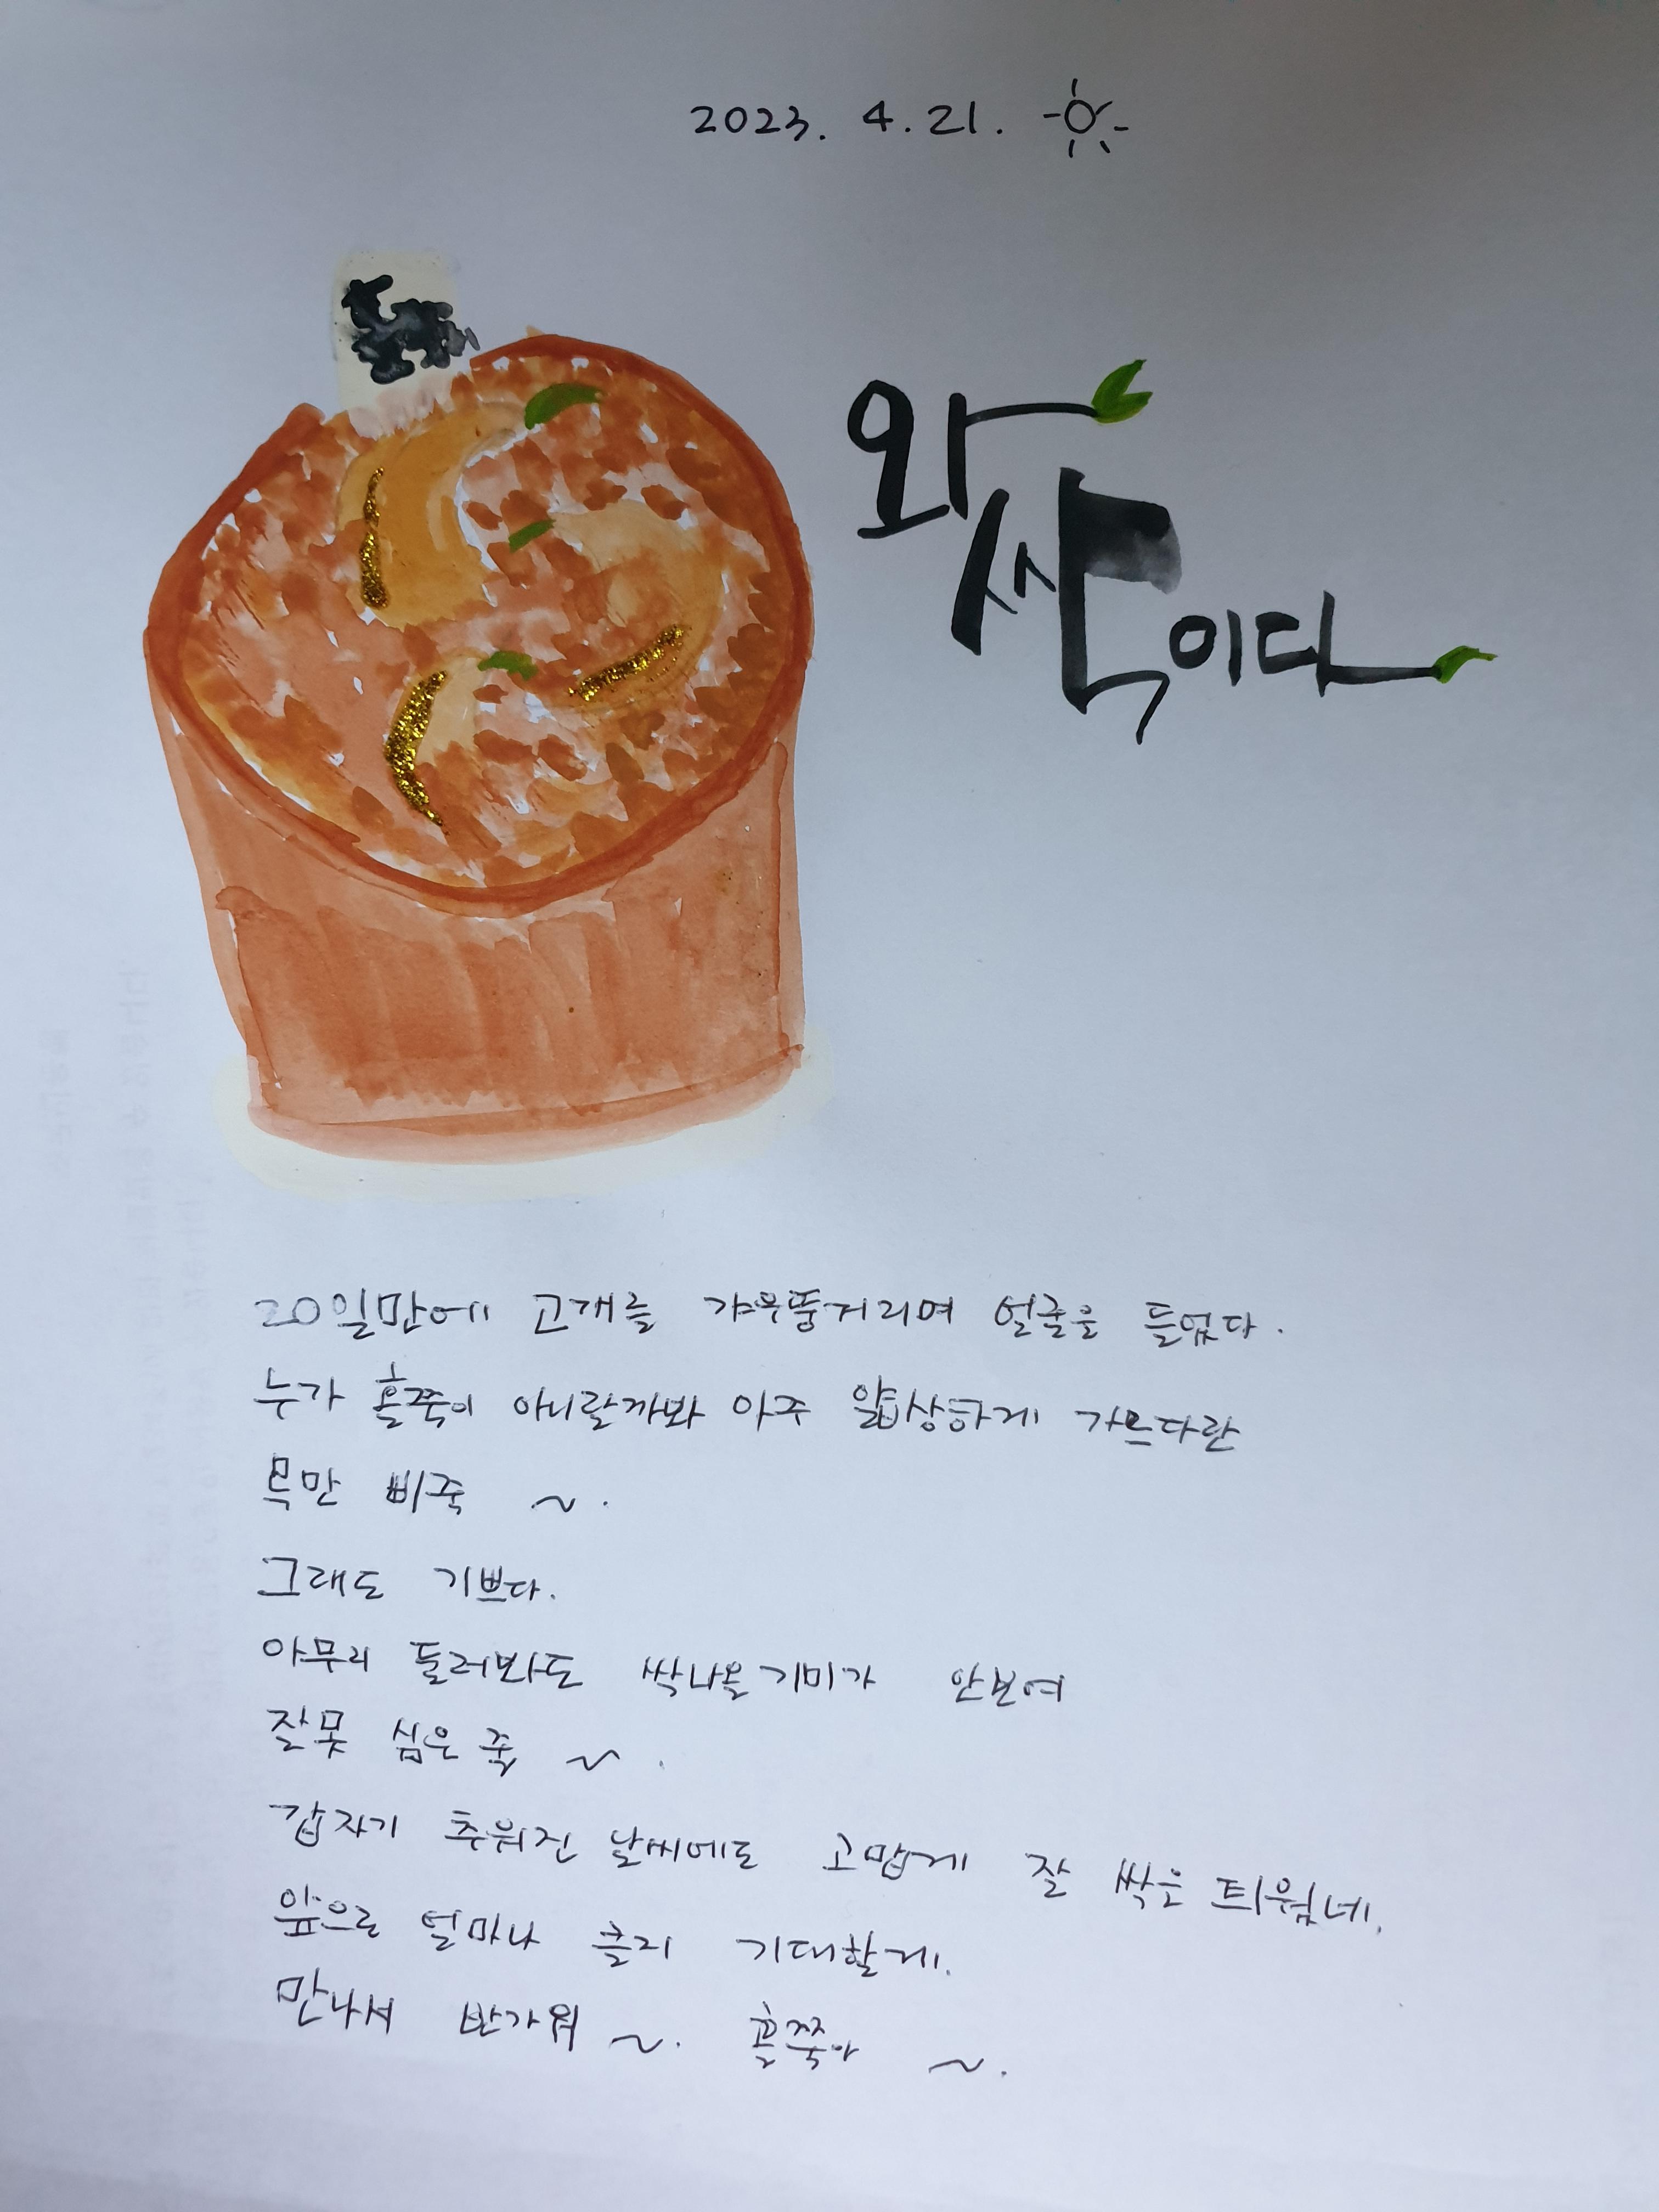 2023. 4. 21.
와
싹이다
20일만에 고개를 갸우뚱거리며 얼굴을 들었다.
누가 홀쭉이 아니랄까봐 아주 얇상하게 가느다란
목만 삐죽 ~.
그래도 기쁘다.
아무리 둘러봐도 싹나올기미가 안보여
잘못 심은 줄 ~.
갑자기 추워진 날씨에도 고맙게 잘 싹은 틔웠네.
앞으로 얼마나 클지 기대할게.
만나서 반가워 ~. 홀쭉아 ~.